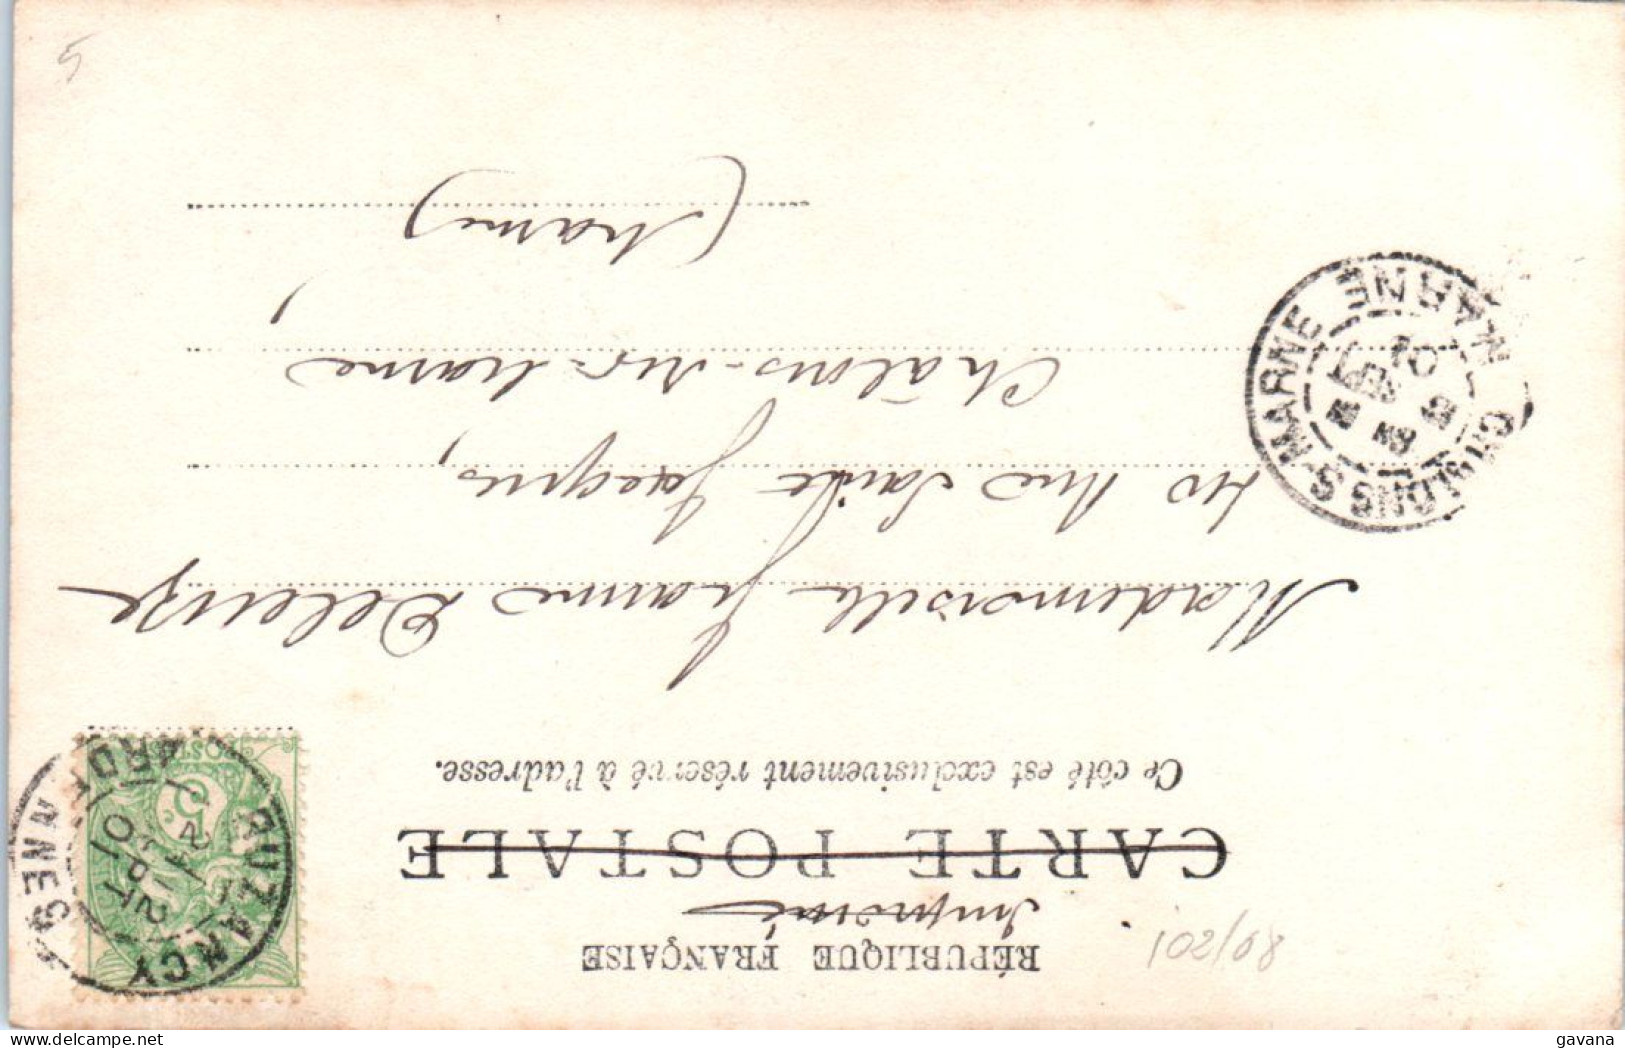 RÉPUBLIQUE FRANÇAISE
Imprimé
CARTE POSTALE
Ce côté est exclusivement réservé à l'adresse.
Mademoiselle Jeanne Deleuze
Rue Saint Jacques,
Châlons-sur-Marne
(Marne)
BUZANCY
ARDENNES
01
5c
POSTES
CHALONS S-MARNE
MARNE
SEPT
01
102/08
5
gavana